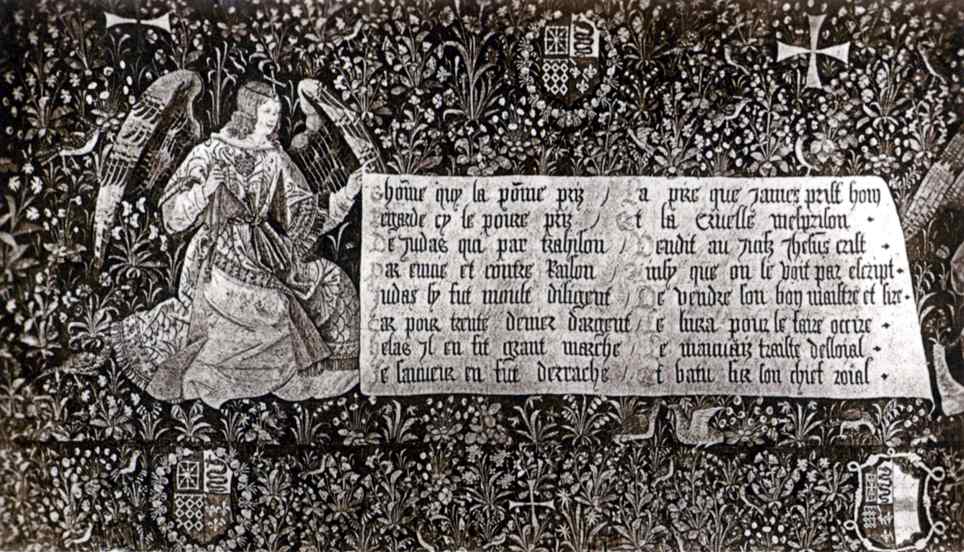 hõme quy la põme priz / La pire que James prist hom
Regarde cy le poure priz / Et la cruelle mesprison
De Judas qui par trahison / Vendit au Juifz Jhesus crist
Par envie et contre Raison / Ainsy que on le voit par escript
Judas sy fut moult diligent / De vendre son bon maistre et sire
Car pour trente denier dargent / Le livra pour le faire occire
helas Il en fit grant marche / Le mauvaiz traiste desloial
Le sauveur en fut derrache / Et batu sur son chief roial